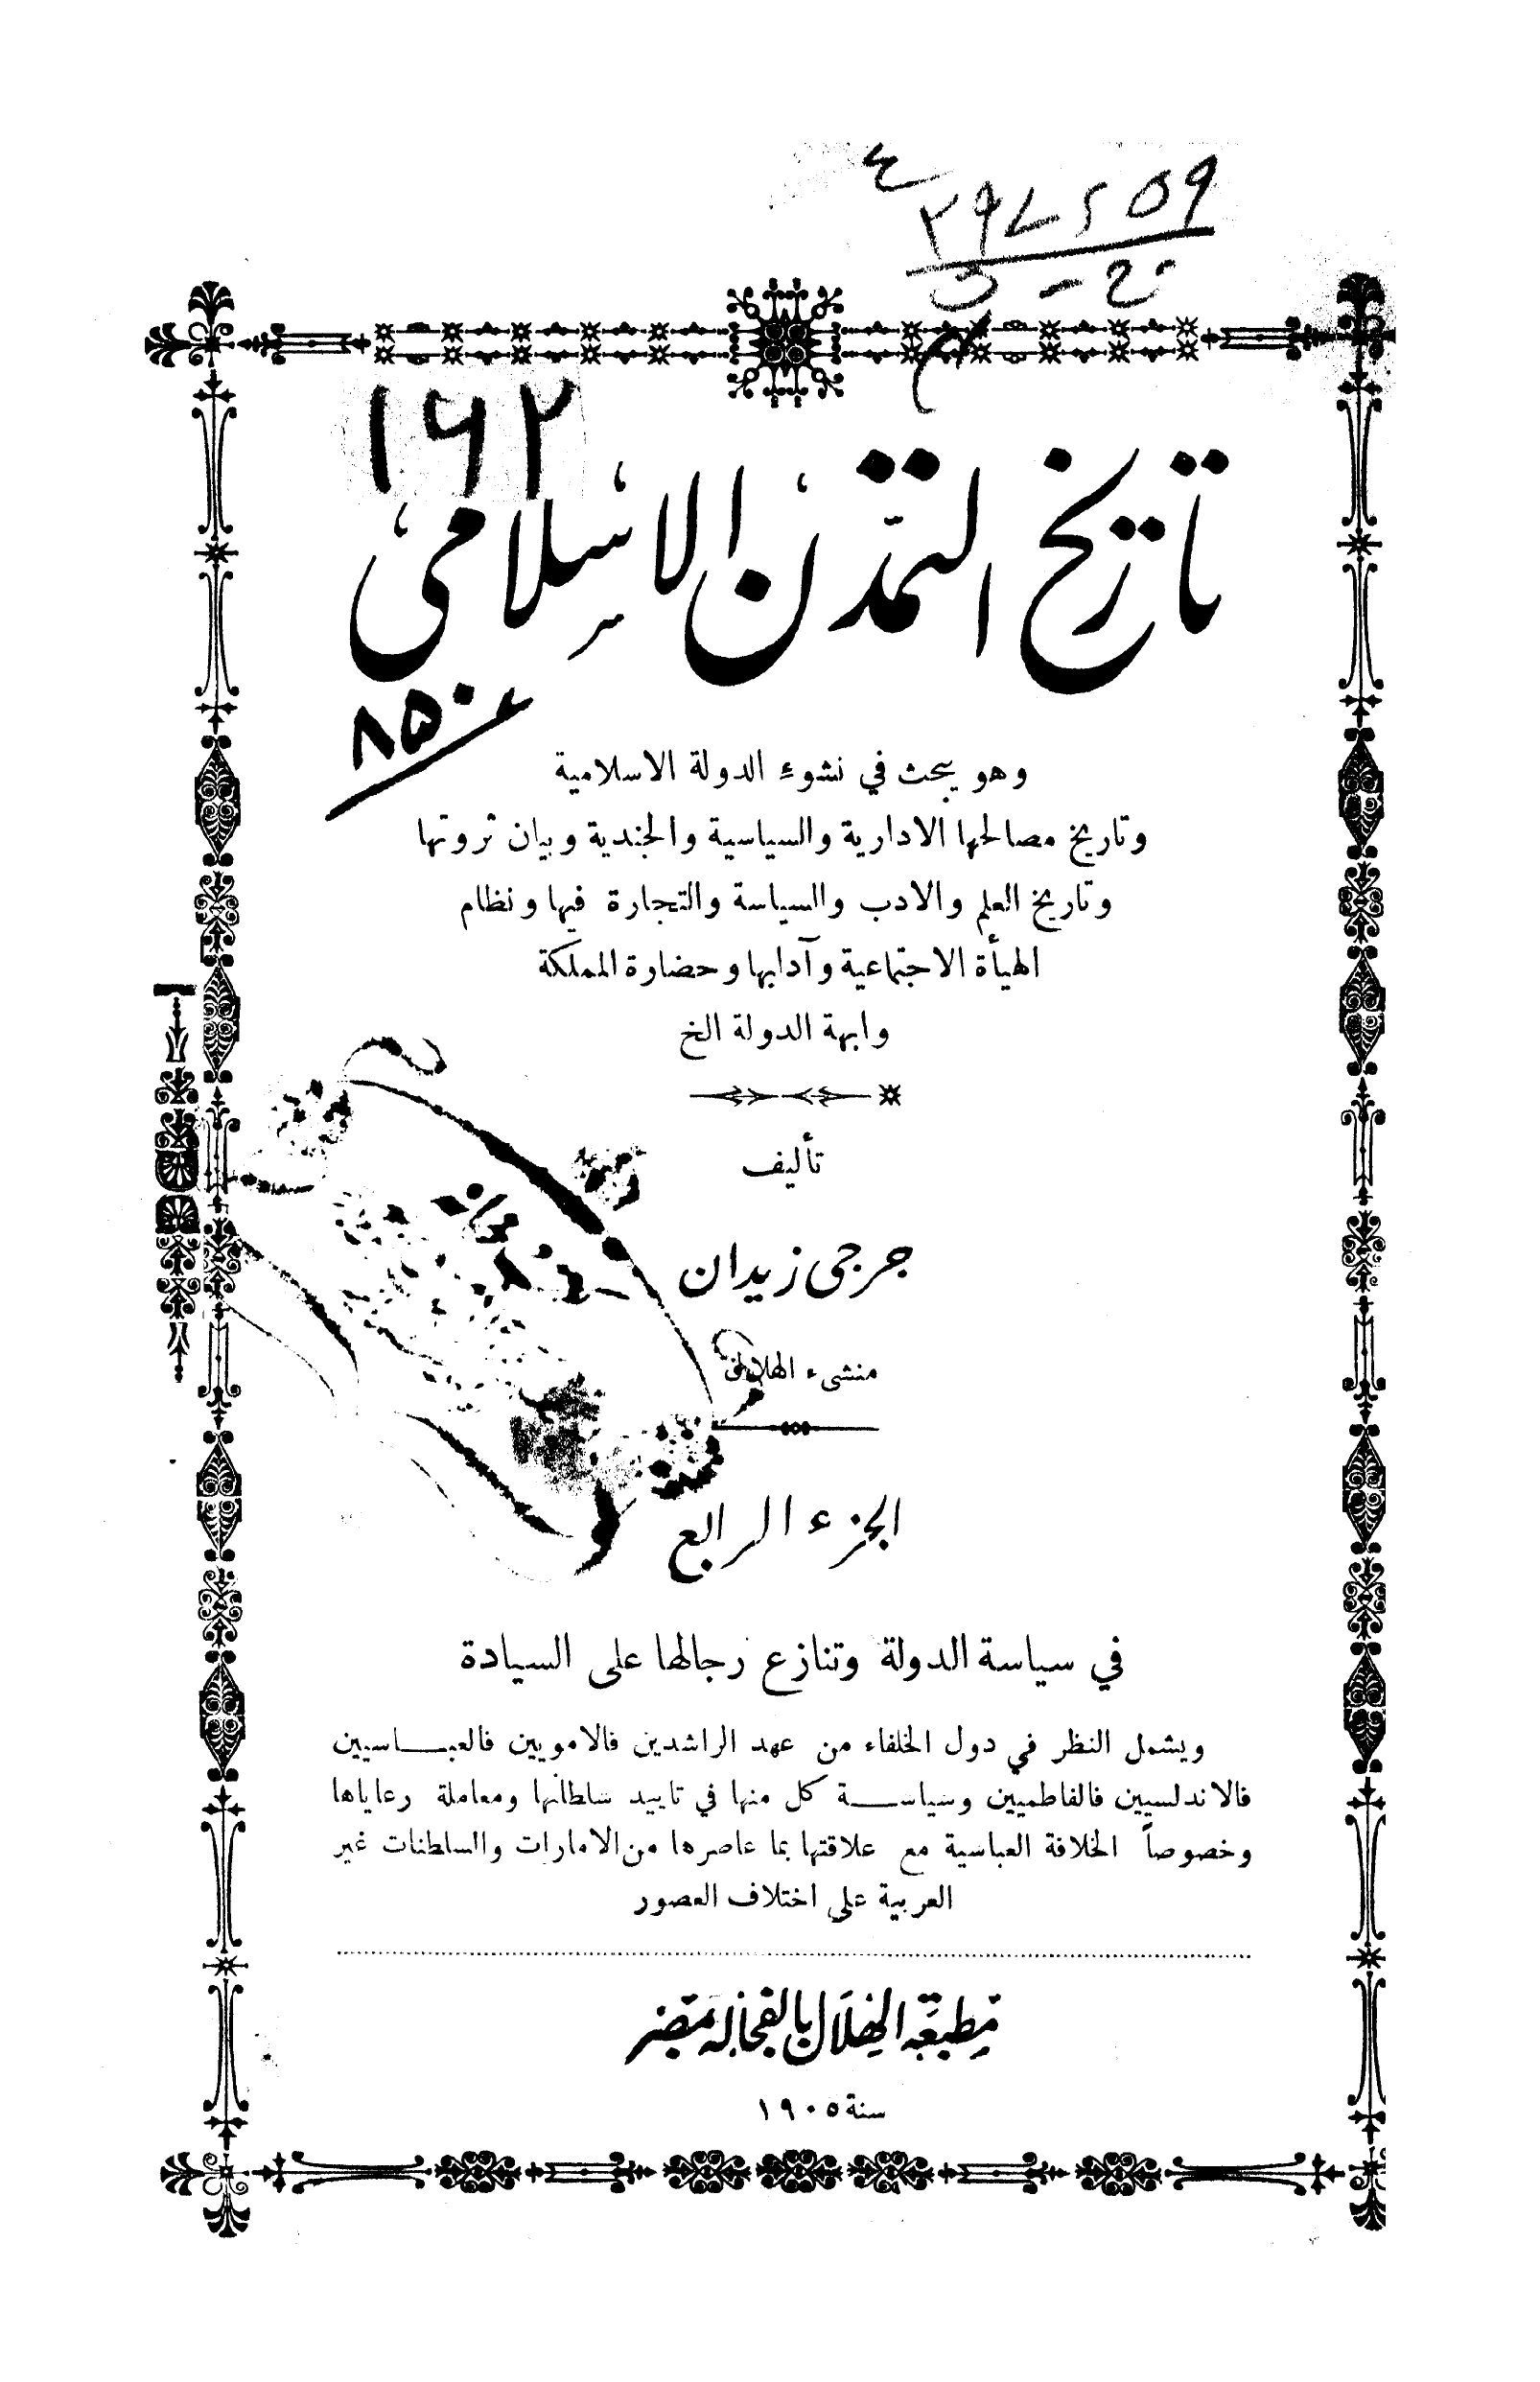 تاريخ التمدن الاسلامي
وهو يبحث في نشوء الدولة الاسلامية
وتاريخ مصالحها الادارية والسياسية والجندية وبيان ثروتها
وتاريخ العلم والادب والسياسة والتجارة فيها ونظام
الهيأة الاجتماعية وآدابها وحضارة المملكة
وابهة الدولة الخ
تأليف
جرجي زيدان
منشىء الهلال
الجزء الرابع
في سياسة الدولة وتنازع رجالها على السيادة
ويشمل النظر في دول الخلفاء من عهد الراشدين فالامويين فالعباسيين
فالاندلسيين فالفاطميين وسياسة كل منها في تاييد سلطانها ومعاملة رعاياها
وخصوصاً الخلافة العباسية مع علاقتها بما عاصرها من الامارات والسلطنات غير
العربية على اختلاف العصور
مطبعة الهلال بالفجالة بمصر
سنة ١٩٠٥